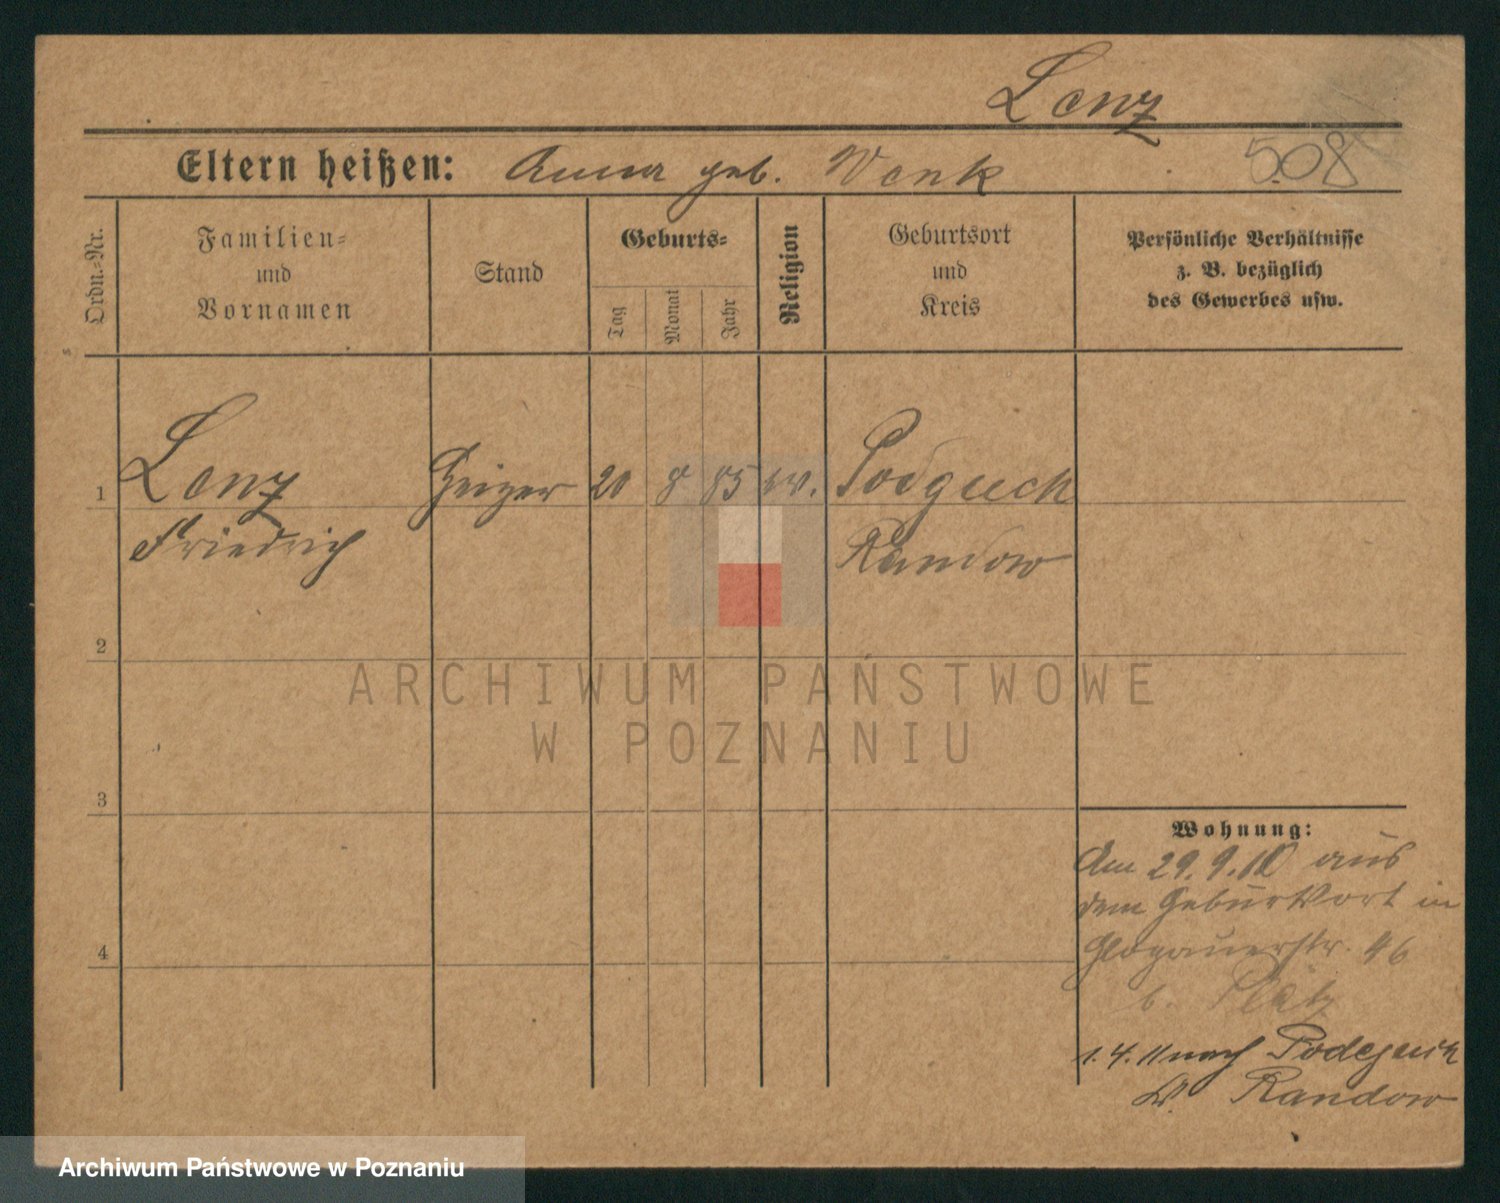 Lenz
508
Eltern heißen: Anna geb. Wenk
Ordn.-Nr.
Familien-
und
Vornamen
Stand
Geburts-
Tag
Monat
Jahr
Religion
Geburtsort
und
Kreis
Persönliche Verhältnisse
z. B. bezüglich
des Gewerbes usw.
1
Lenz
Friedrich
Heizer
20
8
85
ev.
Podejuch
Randow
2
3
4
Wohnung:
Am 29.9.10 aus
dem Geburtsort in
Glogauerstr. 46
b. Platz
1.4.11 nach Podejuch
Kr. Randow
ARCHIWUM PAŃSTWOWE
W POZNANIU
Archiwum Państwowe w Poznaniu